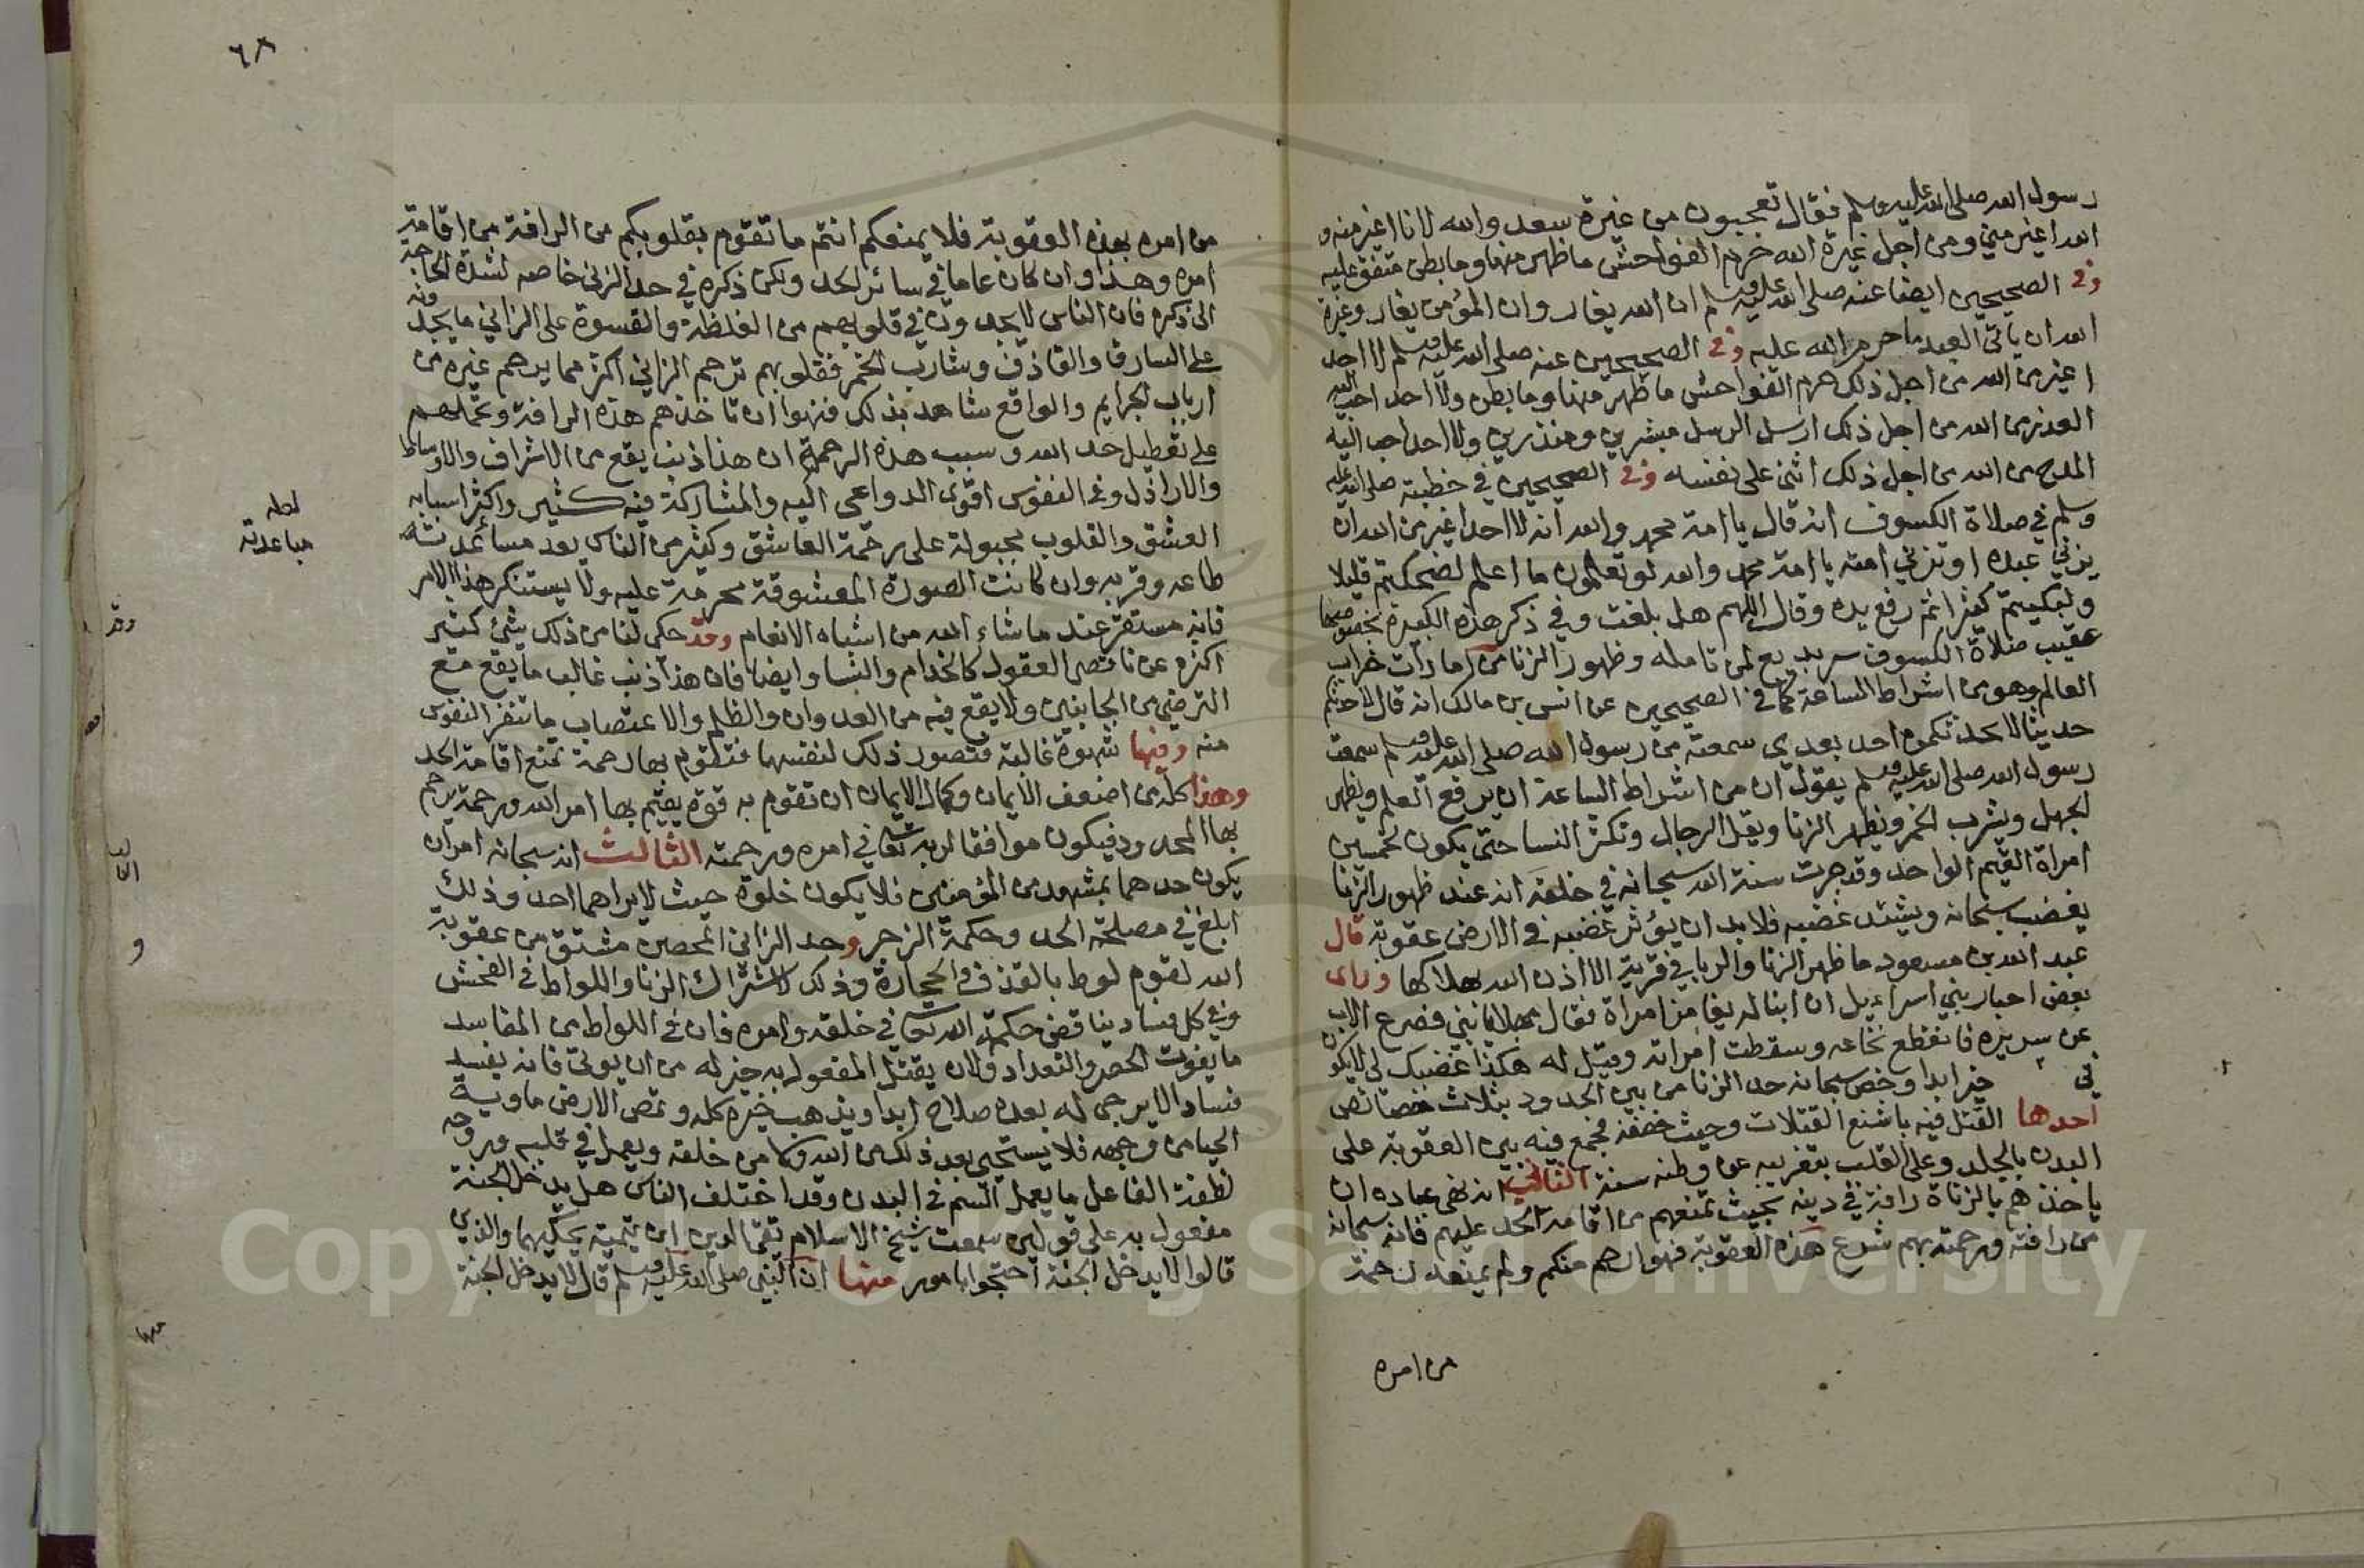 رسول الله صلى الله عليه وسلم فقال تعجبون من غيرة سعد والله لانا اغير منه و
الله اغير مني ومن اجل غيرة الله حرم الفواحش ما ظهر منها وما بطن متفق عليه
وفي الصحيحين ايضا عنه صلى الله عليه وسلم ان الله يغار وان المؤمن يغار وغيرة
الله ان ياتي العبد ما حرم الله عليه وفي الصحيحين عنه صلى الله عليه وسلم لا احد
اغير من الله من اجل ذلك حرم الفواحش ما ظهر منها وما بطن ولا احد احب اليه
العذر من الله من اجل ذلك ارسل الرسل مبشرين ومنذرين ولا احد احب اليه
المدح من الله من اجل ذلك اثنى على نفسه وفي الصحيحين في خطبته صلى الله عليه
وسلم في صلاة الكسوف انه قال يا امة محمد والله انه لا احد اغير من الله ان
يزني عبده او تزني امته يا امة محمد والله لو تعلمون ما اعلم لضحكتم قليلا
ولبكيتم كثيرا ثم رفع يده وقال اللهم هل بلغت وفي ذكر هذه الكبيرة بخصوصها
عقيب صلاة الكسوف سر بديع لمن تامله وظهور الزنا من امارات خراب
العالم وهو من اشراط الساعة كما في الصحيحين عن انس بن مالك انه قال لاحدثنكم
حديثا لا يحدثكموه احد بعدي سمعته من رسول الله صلى الله عليه وسلم سمعت
رسول الله صلى الله عليه وسلم يقول ان من اشراط الساعة ان يرفع العلم ويظهر
الجهل ويشرب الخمر ويظهر الزنا ويقل الرجال وتكثر النسا حتى يكون لخمسين
امراة القيم الواحد وقد جرت سنة الله سبحانه في خلقه انه عند ظهور الزنا
يغضب سبحانه ويشتد غضبه فلا بد ان يؤثر غضبه في الارض عقوبة قال
عبد الله بن مسعود ما ظهر الزنا والربا في قرية الا اذن الله بهلاكها وراى
بعض احبار بني اسراءيل ان ابنا له يغامز امراة فقال مهلا يا بني فصرع الاب
عن سريره فانقطع نخاعه وسقطت امراته وقيل له هكذا غضبك لي لا يكون
في خير ابدا وخص سبحانه حد الزنا من بين الحدود بثلاث خصائص
احدها القتل فيه باشنع القتلات وحيث خففه فجمع فيه بين العقوبة على
البدن بالجلد وعلى القلب بتغريبه عن وطنه سنة الثاني انه نهى عباده ان
ياخذهم بالزناة رافة في دينه بحيث تمنعهم من اقامة الحد عليهم فانه سبحانه
من رافته ورحمته بهم شرع هذه العقوبة فهو ارحم منكم ولم يمنعه رحمته
من امره
٦٨
من امره بهذه العقوبة فلا يمنعكم انتم ما تقوم بقلوبكم من الرافة من اقامة
امره وهذا وان كان عاما في سائر الحد ولكن ذكره في حد الزنى خاصه لشدة الحاجة
الى ذكره فان الناس لا يجدون في قلوبهم من الغلظة والقسوة على الزاني ما يجدونه
على السارق والقاذف وشارب الخمر فقلوبهم ترحم الزاني اكثر مما يرحم غيره من
ارباب الجرايم والواقع شاهد بذلك فنهوا ان تاخذهم هذه الرافة وتحملهم
على تعطيل حد الله وسبب هذه الرحمة ان هذا ذنب يقع من الاشراف والاوساط
والاراذل وفي النفوس اقوى الدواعي اليه والمشاركة فيه كثير واكثر اسبابه
العشق والقلوب مجبولة على رحمة العاشق وكثير من الناس يعد مساعدته
طاعه وقربه وان كانت الصورة المعشوقة محرمة عليه ولا يستنكر هذا الامر
فانه مستقر عند ما شاء الله من اشباه الانعام وقد حكى لنا من ذلك شئ كثير
اكثره عن ناقصي العقول كالخدام والنسا وايضا فان هذا ذنب غالب ما يقع مع
التراضي من الجانبين ولا يقع فيه من العدوان والظلم والاغتصاب ما تنفر النفوس
منه وفيها شهوة غالبة فتصور ذلك لنفسها فتقوم بها رحمة تمنع اقامة الحد
وهذا كله من اضعف الايمان وكمال الايمان ان تقوم به قوة يقيم بها امر الله ورحمة يرحم
بها المحدود فيكون موافقا لربه تعالى في امره ورحمته الثالث انه سبحانه امر ان
يكون حدهما بمشهد من المؤمنين فلا يكون خلوة حيث لا يراهما احد وذلك
ابلغ في مصلحة الحد وحكمة الزجر وحد الزاني المحصن مشتق من عقوبة
الله لقوم لوط بالقذف والحجارة وذلك لاشتراك الزنا واللواط في الفحش
وفي كل فساد يناقض حكمة الله تعالى في خلقه وامره فان في اللواط من المفاسد
ما يفوت الحصر والتعداد ولان يقتل المفعول به خير له من ان يوتى فانه يفسد
فسادا لا يرجى له بعده صلاح ابدا ويذهب خيره كله وتمص الارض ماوية
الحيا من وجهه فلا يستحيي بعد ذلك من الله ولا من خلقه ويعمل في قلبه وروحه
نطفة الفاعل ما يعمل السم في البدن وقد اختلف الناس هل يدخل الجنة
مفعول به على قولين سمعت شيخ الاسلام تقي الدين ابن تيمية يحكيهما والذين
قالوا لا يدخل الجنة احتجوا بامور منها ان النبي صلى الله عليه وسلم قال لا يدخل الجنة
لطه
مباعدته